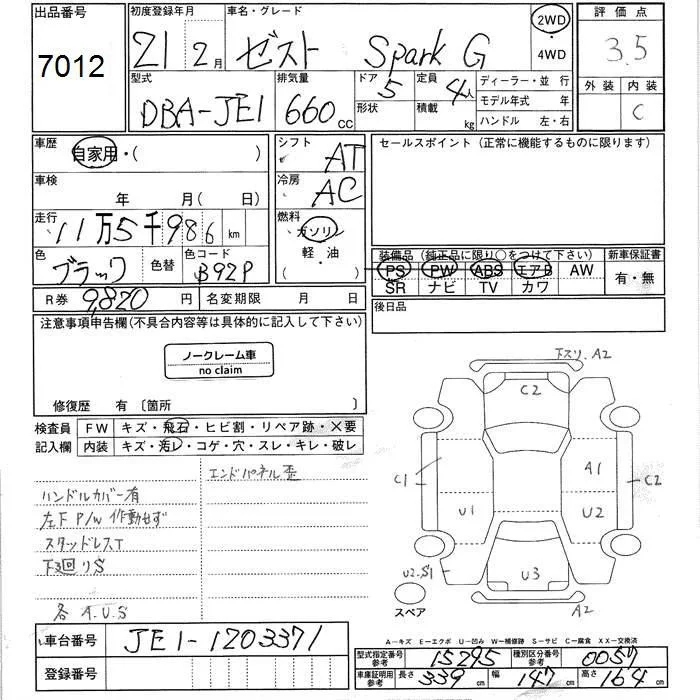 出品番号 初度登録年月 車名・グレード 2WD 評価点
7012 21 2月 ゼスト Spark G ・ 4WD 3.5
型式 排気量 ドア 5 定員 4人 ディーラー・並行 外装 内装
DBA-JE1 660 CC 形状 積載 kg モデル年式 年 C
ハンドル 左・右
車歴 自家用・( ) シフト AT セールスポイント (正常に機能するものに限ります)
車検 年 月( 日) 冷房 AC
走行 11万5千986 km 燃料 ガソリン
軽・油
色 ブラック 色替 色コード B92P 装備品 (純正品に限り○をつけて下さい) 新車保証書
PS PW ABS エアB AW 有・無
SR ナビ TV カワ
R券 9,820 円 名変期限 月 日 後日品
注意事項申告欄(不具合内容等は具体的に記入して下さい)
ノークレーム車
no claim
修復歴 有 〔箇所 〕
検査員 FW キズ・飛石・ヒビ割・リペア跡・X要
記入欄 内装 キズ・汚レ・コゲ・穴・スレ・キレ・破レ
エンドパネル歪
ハンドルカバー有
左F P/W 作動せず
スタッドレスT
下廻りS
各 A.U.S
下スリ. A2
C2
C1 A1 C2
U1 U2
U2.S1 U3
スペア A2
A-キズ E-エクボ U-凹み W-補修跡 S-サビ C-腐食 XX-交換済
車台番号 JE1-1203371
型式指定番号 参考 15295 種別区分番号 参考 0057
登録番号
車庫証明用 参考 長さ 339 cm 幅 147 cm 高さ 164 cm